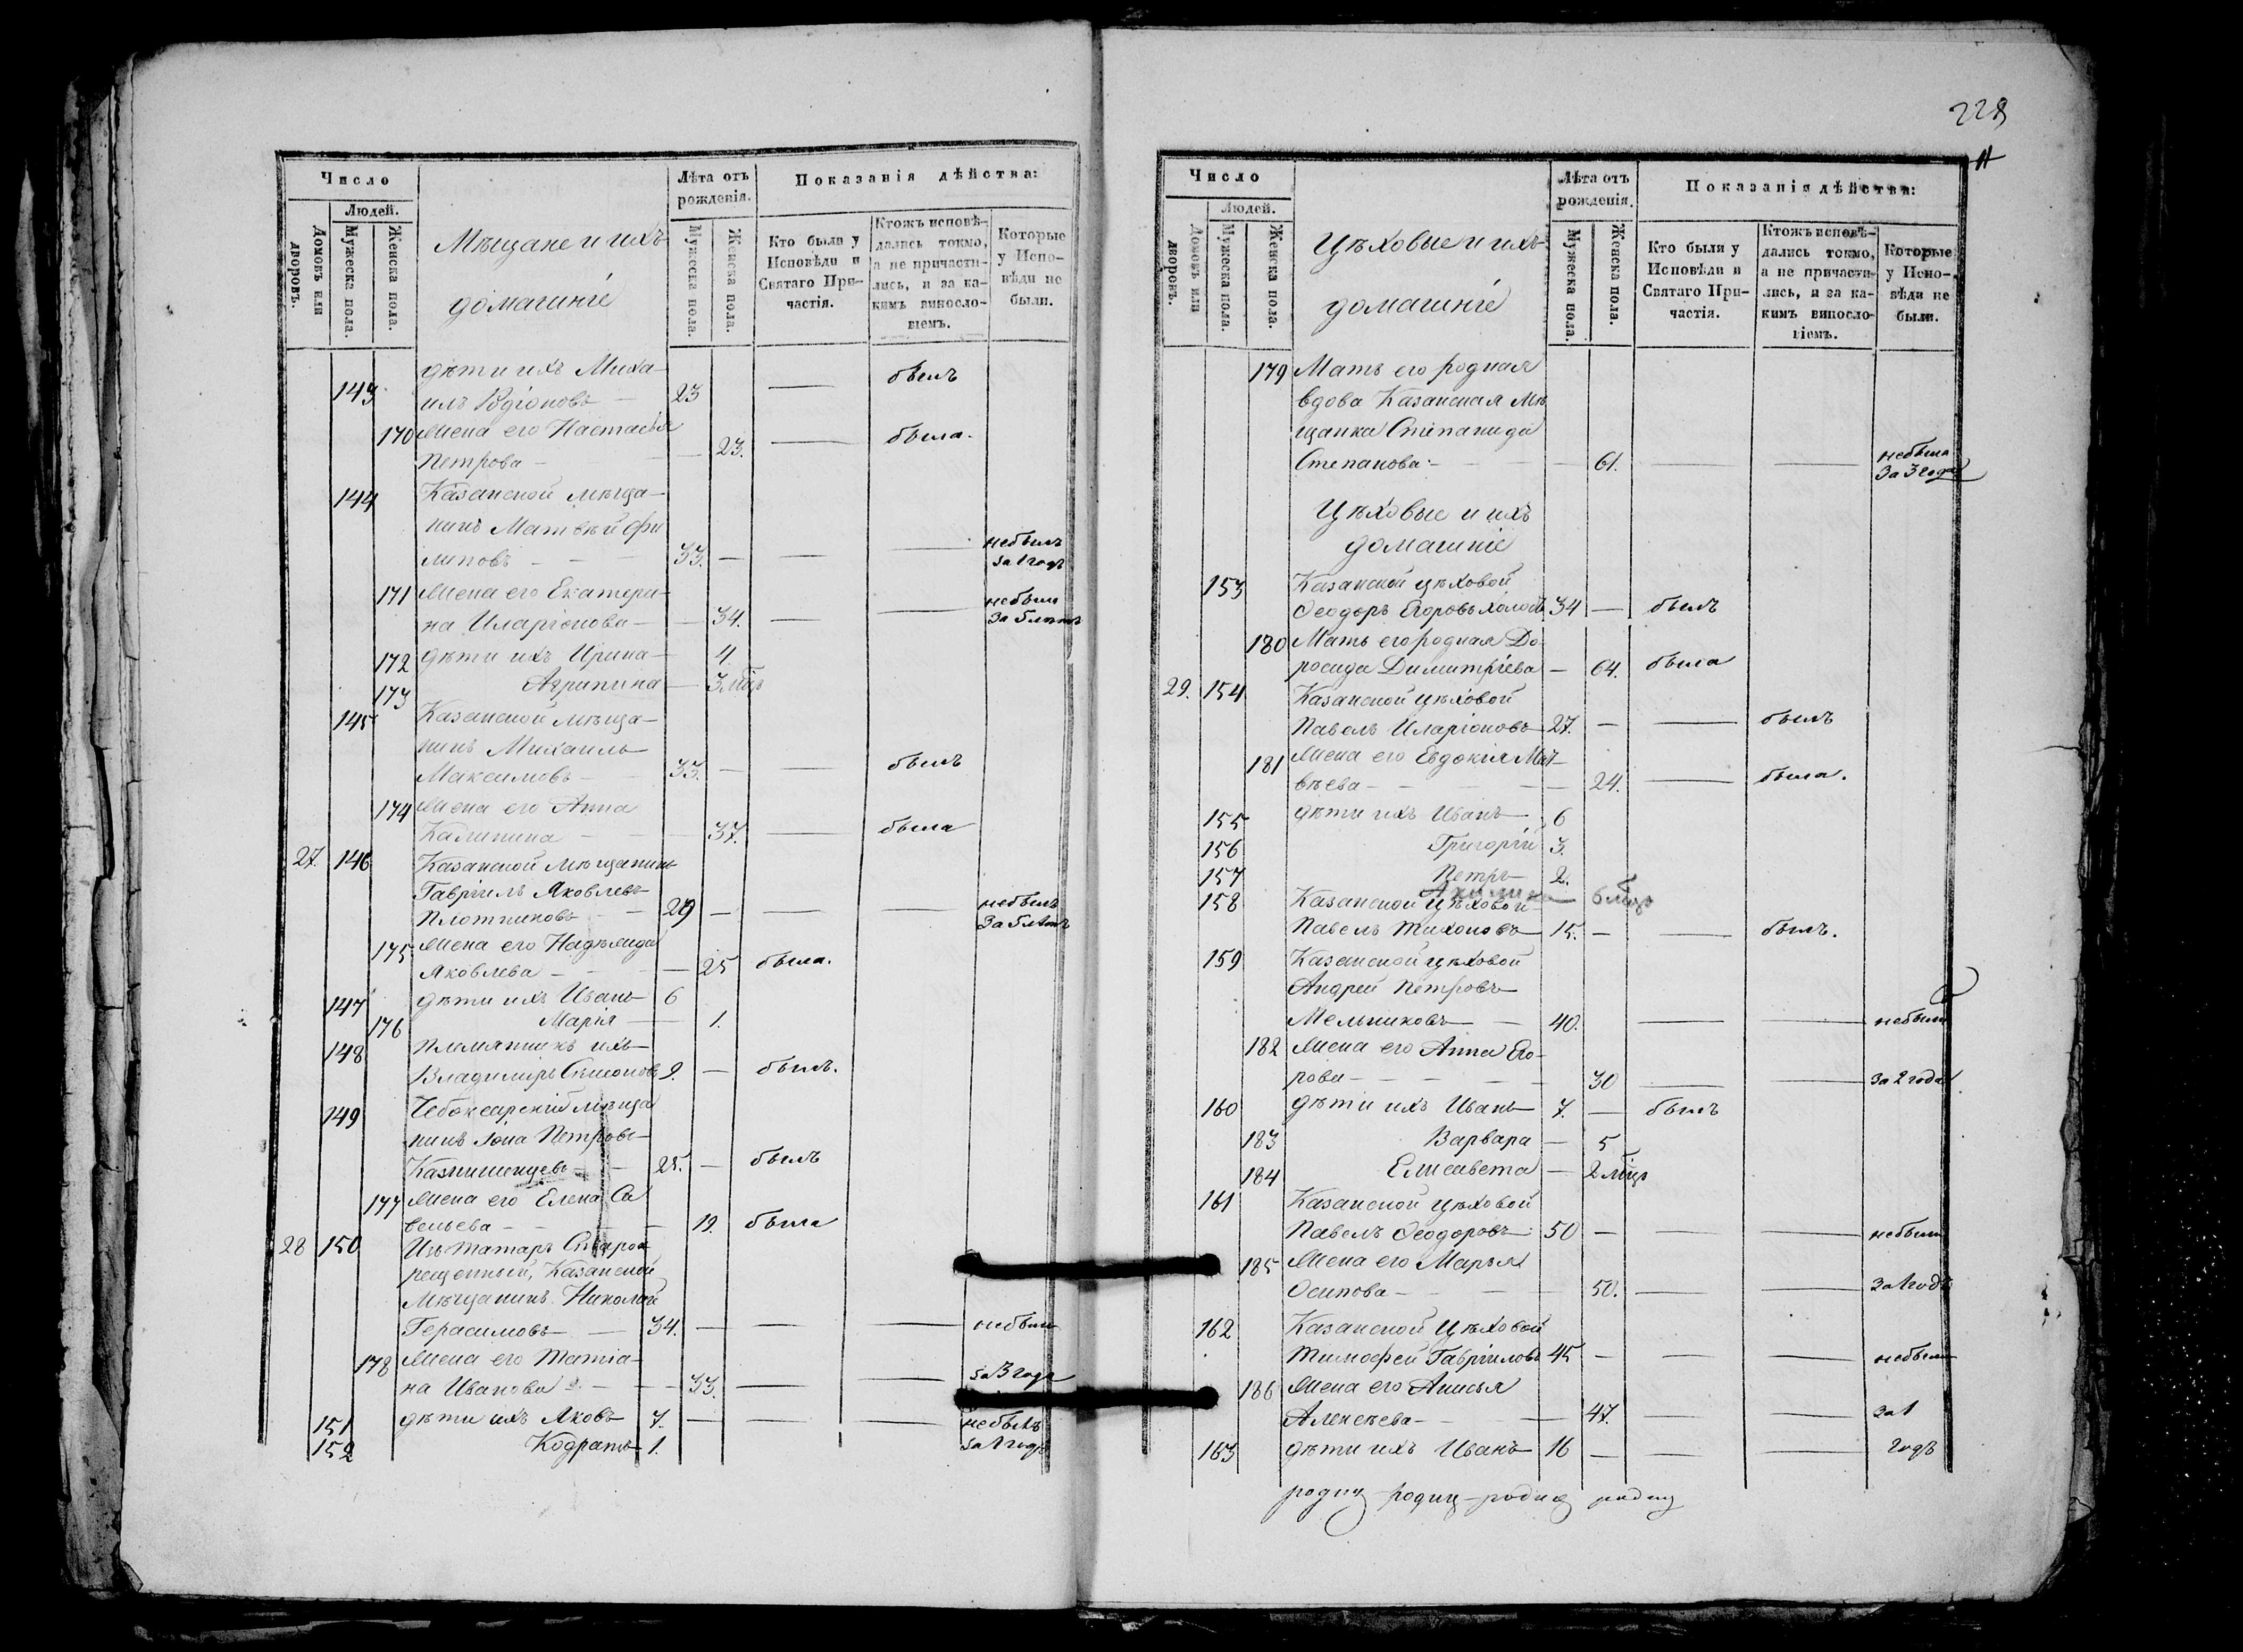 Число
Людей.
Домовъ или дворовъ.
Мужеска пола.
Женска пола.
Мѣщане и ихъ
домашніе
Лѣта отъ рожденія.
Мужеска пола.
Женска пола.
Показанія дѣйства:
Кто были у Исповѣди и Святаго Причастія.
Ктожъ исповѣдались токмо, а не причастились, и за какимъ винословіемъ.
Которые у Исповѣди не были.
дѣти ихъ Миха-
143 илъ Родіоновъ — 23 — былъ
170 Жена его Настасья
Петрова — 23. — была.
144 Казанской мѣща-
нинъ Матвѣй Фи
липовъ — 33. — — — небылъ за 1 годъ
171 Жена его Екатери-
на Иларіонова — 34. — — небыла за 5 лѣтъ
172 дѣти ихъ Ирина — 4.
173 Агрипина — 3 мѣц
145 Казанской мѣща-
нинъ Михаилъ
Максимовъ — 33. — — былъ
174 Жена его Анна
Калинина — 37. — была
27. 146 Казанской мѣщанинъ
Гавріилъ Яковлевъ
Плотниковъ — 29 — — — небылъ за 5 лѣтъ
175 Жена его Надежда
Яковлева — 25 была.
147 дѣти ихъ Иванъ 6
176 Марія — 1.
148 Племянникъ ихъ
Владимиръ Симоновъ 9. — былъ.
149 Чебоксарскій мѣща
нинъ Іона Петровъ
25. — былъ
177 Жена его Елена Са
вельева — 19. была
28 150 Изъ татаръ Старок
рещенный, Казанской
Мѣщанинъ Николай
Герасимовъ — 34. — — — небыли
178 Жена его Татіа-
на Иванова — 33. — — за 3 года
151 дѣти ихъ Яковъ 7. — — — небылъ
152 Кодратъ 1. за 1 годъ
228
Число
Людей.
Домовъ или дворовъ.
Мужеска пола.
Женска пола.
Цѣховые и ихъ
домашніе
Лѣта отъ рожденія.
Мужеска пола.
Женска пола.
Показанія дѣйства:
Кто были у Исповѣди и Святаго Причастія.
Ктожъ исповѣдались токмо, а не причастились, и за какимъ винословіемъ.
Которые у Исповѣди не были.
179 Мать его родная
вдова Казанская Мѣ
щанка Степанида
Степанова — 61. — — небыла за 3 года
Цѣховые и ихъ
домашніе
153 Казанской цѣховой
Ѳеодоръ Егоровъ холостъ 34 — былъ
180 Мать его родная До
росида Димитріева — 64. была
29. 154 Казанской цѣховой
Павелъ Иларіоновъ 27. — — былъ
181 Жена его Евдокія Мат-
вѣева — 24. — была.
155 дѣти ихъ Иванъ 6
156 Григорій 3.
157 Петръ 2.
Акилина 6 мѣц
158 Казанской цѣховой
Павелъ Тихоновъ 15. — — былъ.
159 Казанской цѣховой
Андрей Петровъ
Мельниковъ — 40. — — небыли
182 Жена его Анна Его-
рова — 30 — — за 2 года
160 дѣти ихъ Иванъ 7. — былъ
183 Варвара — 5
184 Елисавета — 2 мѣц
161 Казанской цѣховой
Павелъ Ѳеодоровъ 50 — — — небыли
185 Жена его Марья
Осипова — 50. — — за 1 годъ
162 Казанской Цѣховой
Тимофей Гавріиловъ 45 — — — небыли
186 Жена его Анисья
Алексѣева — 47. — — за 1
163 дѣти ихъ Иванъ 16 — — — годъ